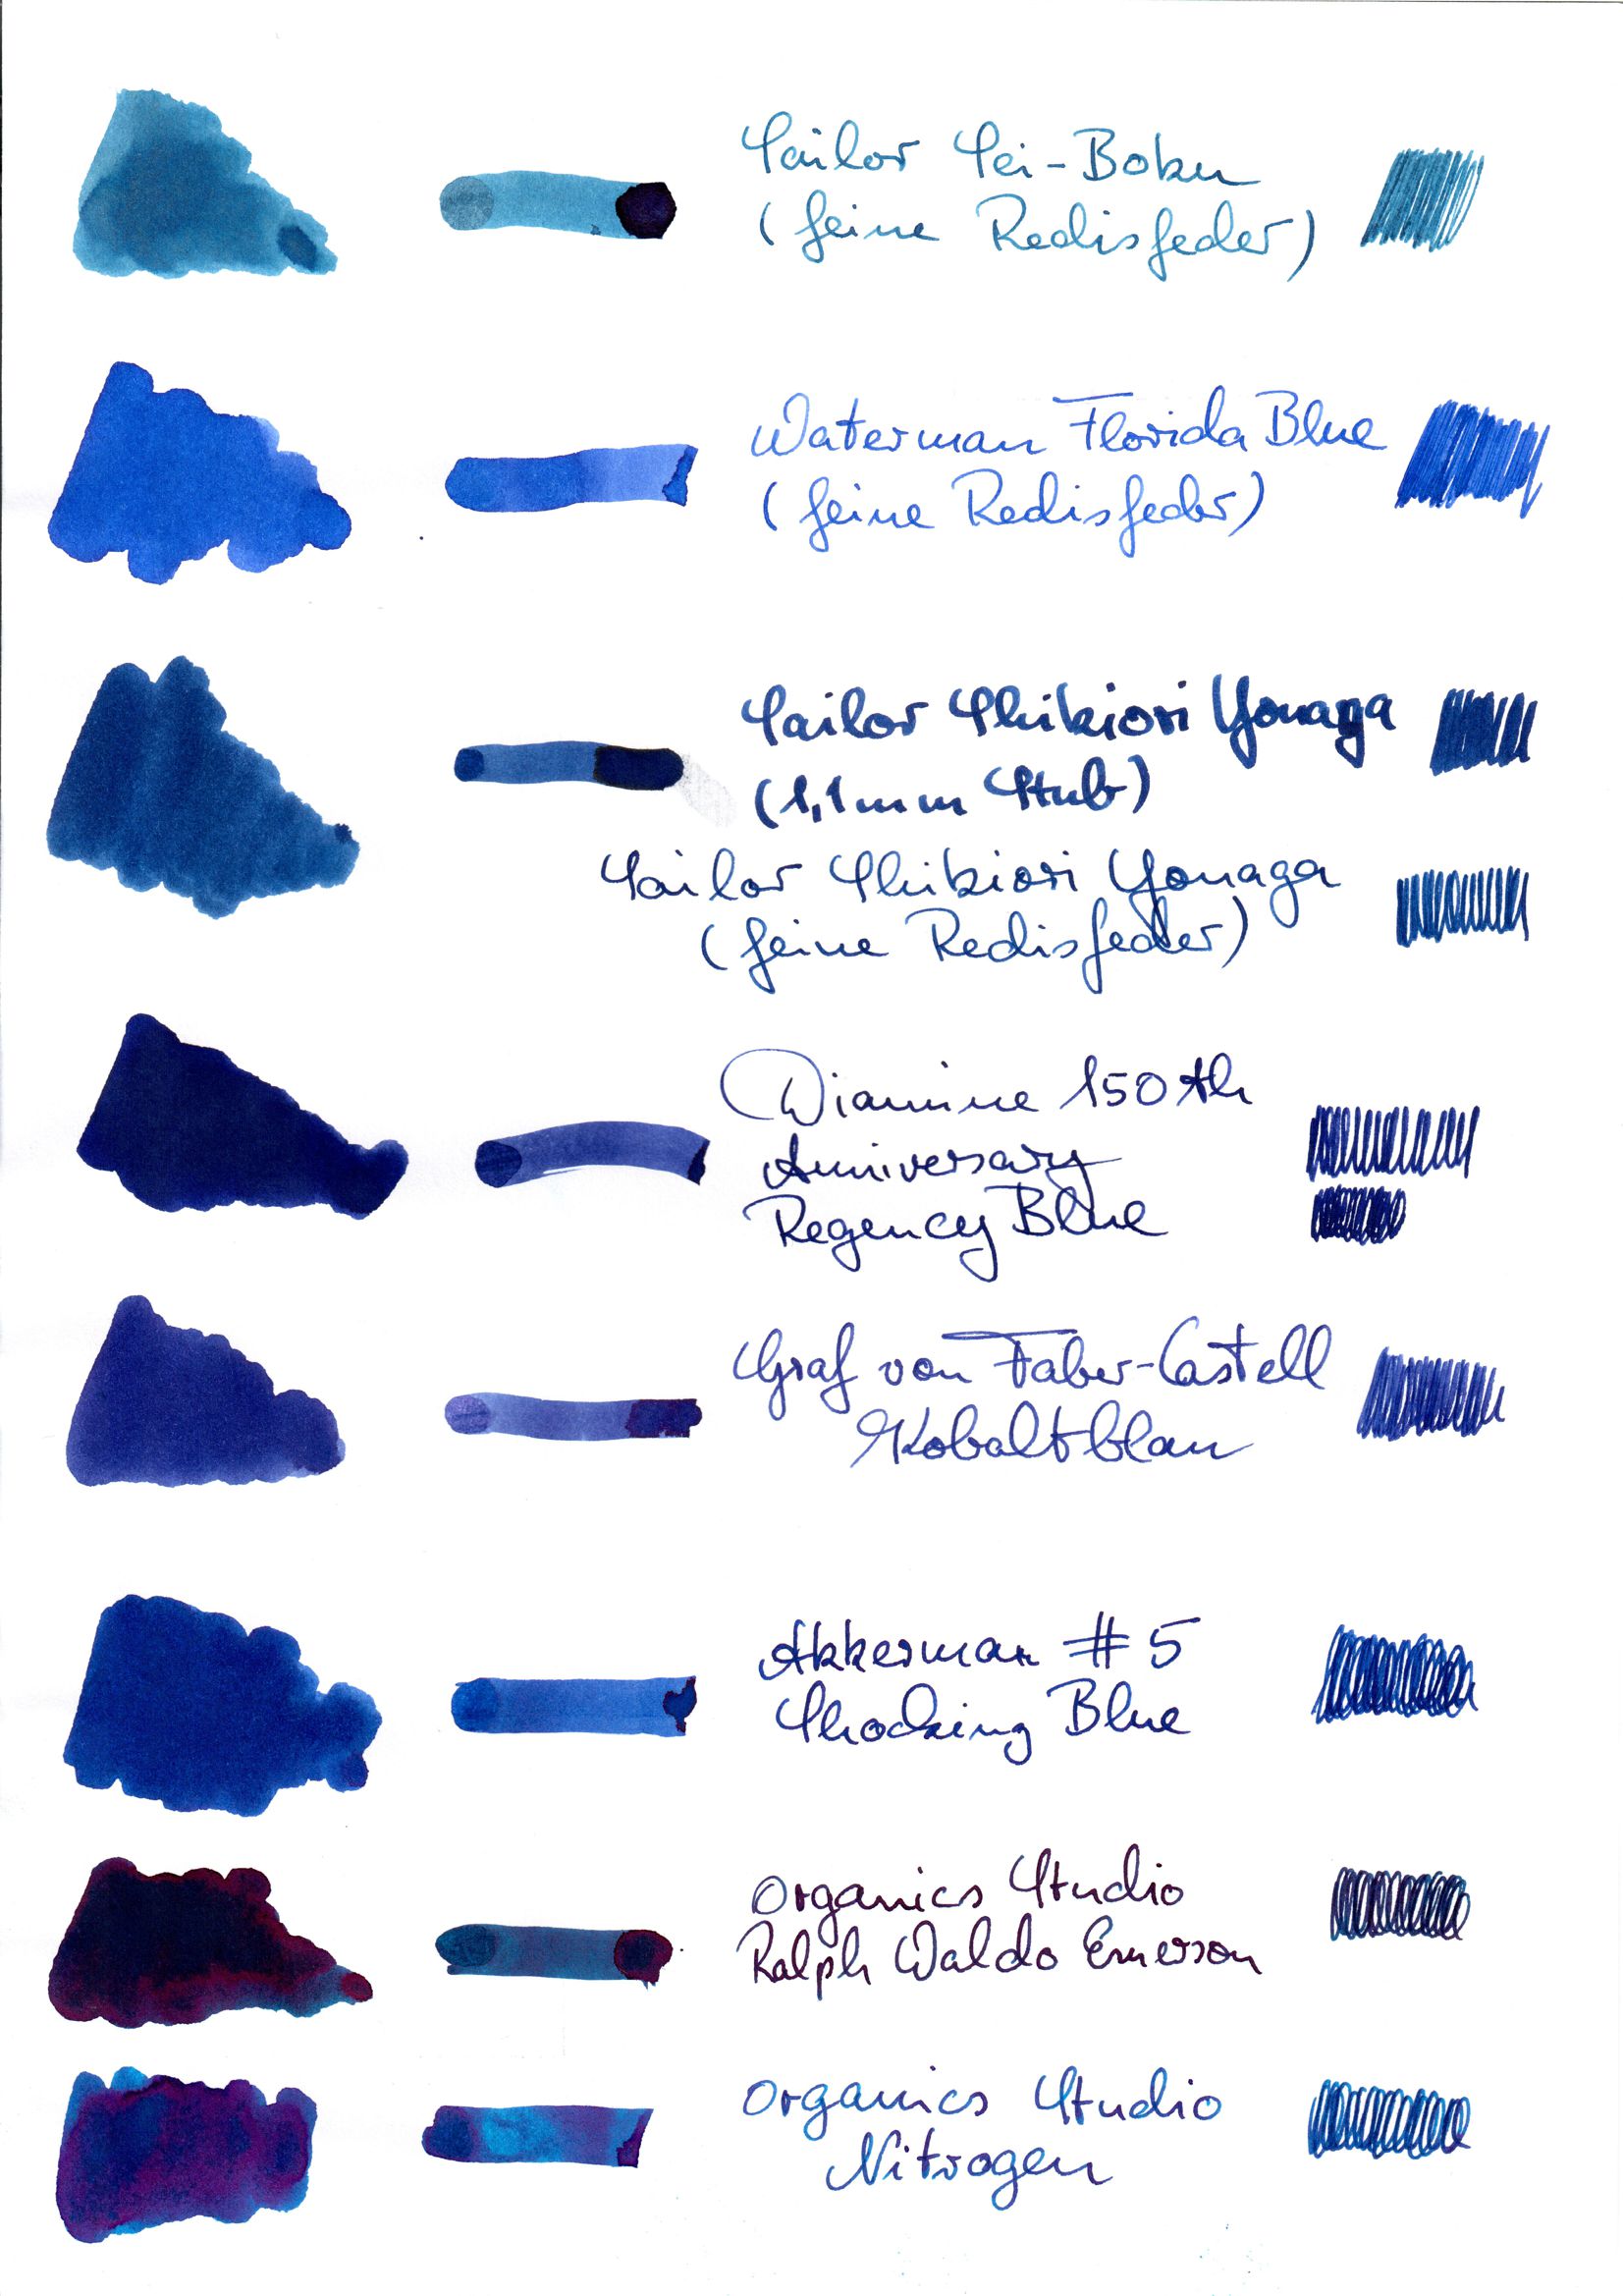 Sailor Sei-Boku
(feine Redisfeder)
Waterman Florida Blue
(feine Redisfeder)
Sailor Shikiori Yonaga
(1,1mm Stub)
Sailor Shikiori Yonaga
(feine Redisfeder)
Diamine 150th
Anniversary
Regency Blue
Graf von Faber-Castell
Kobaltblau
Akkerman #5
Shocking Blue
Organics Studio
Ralph Waldo Emerson
Organics Studio
Nitrogen